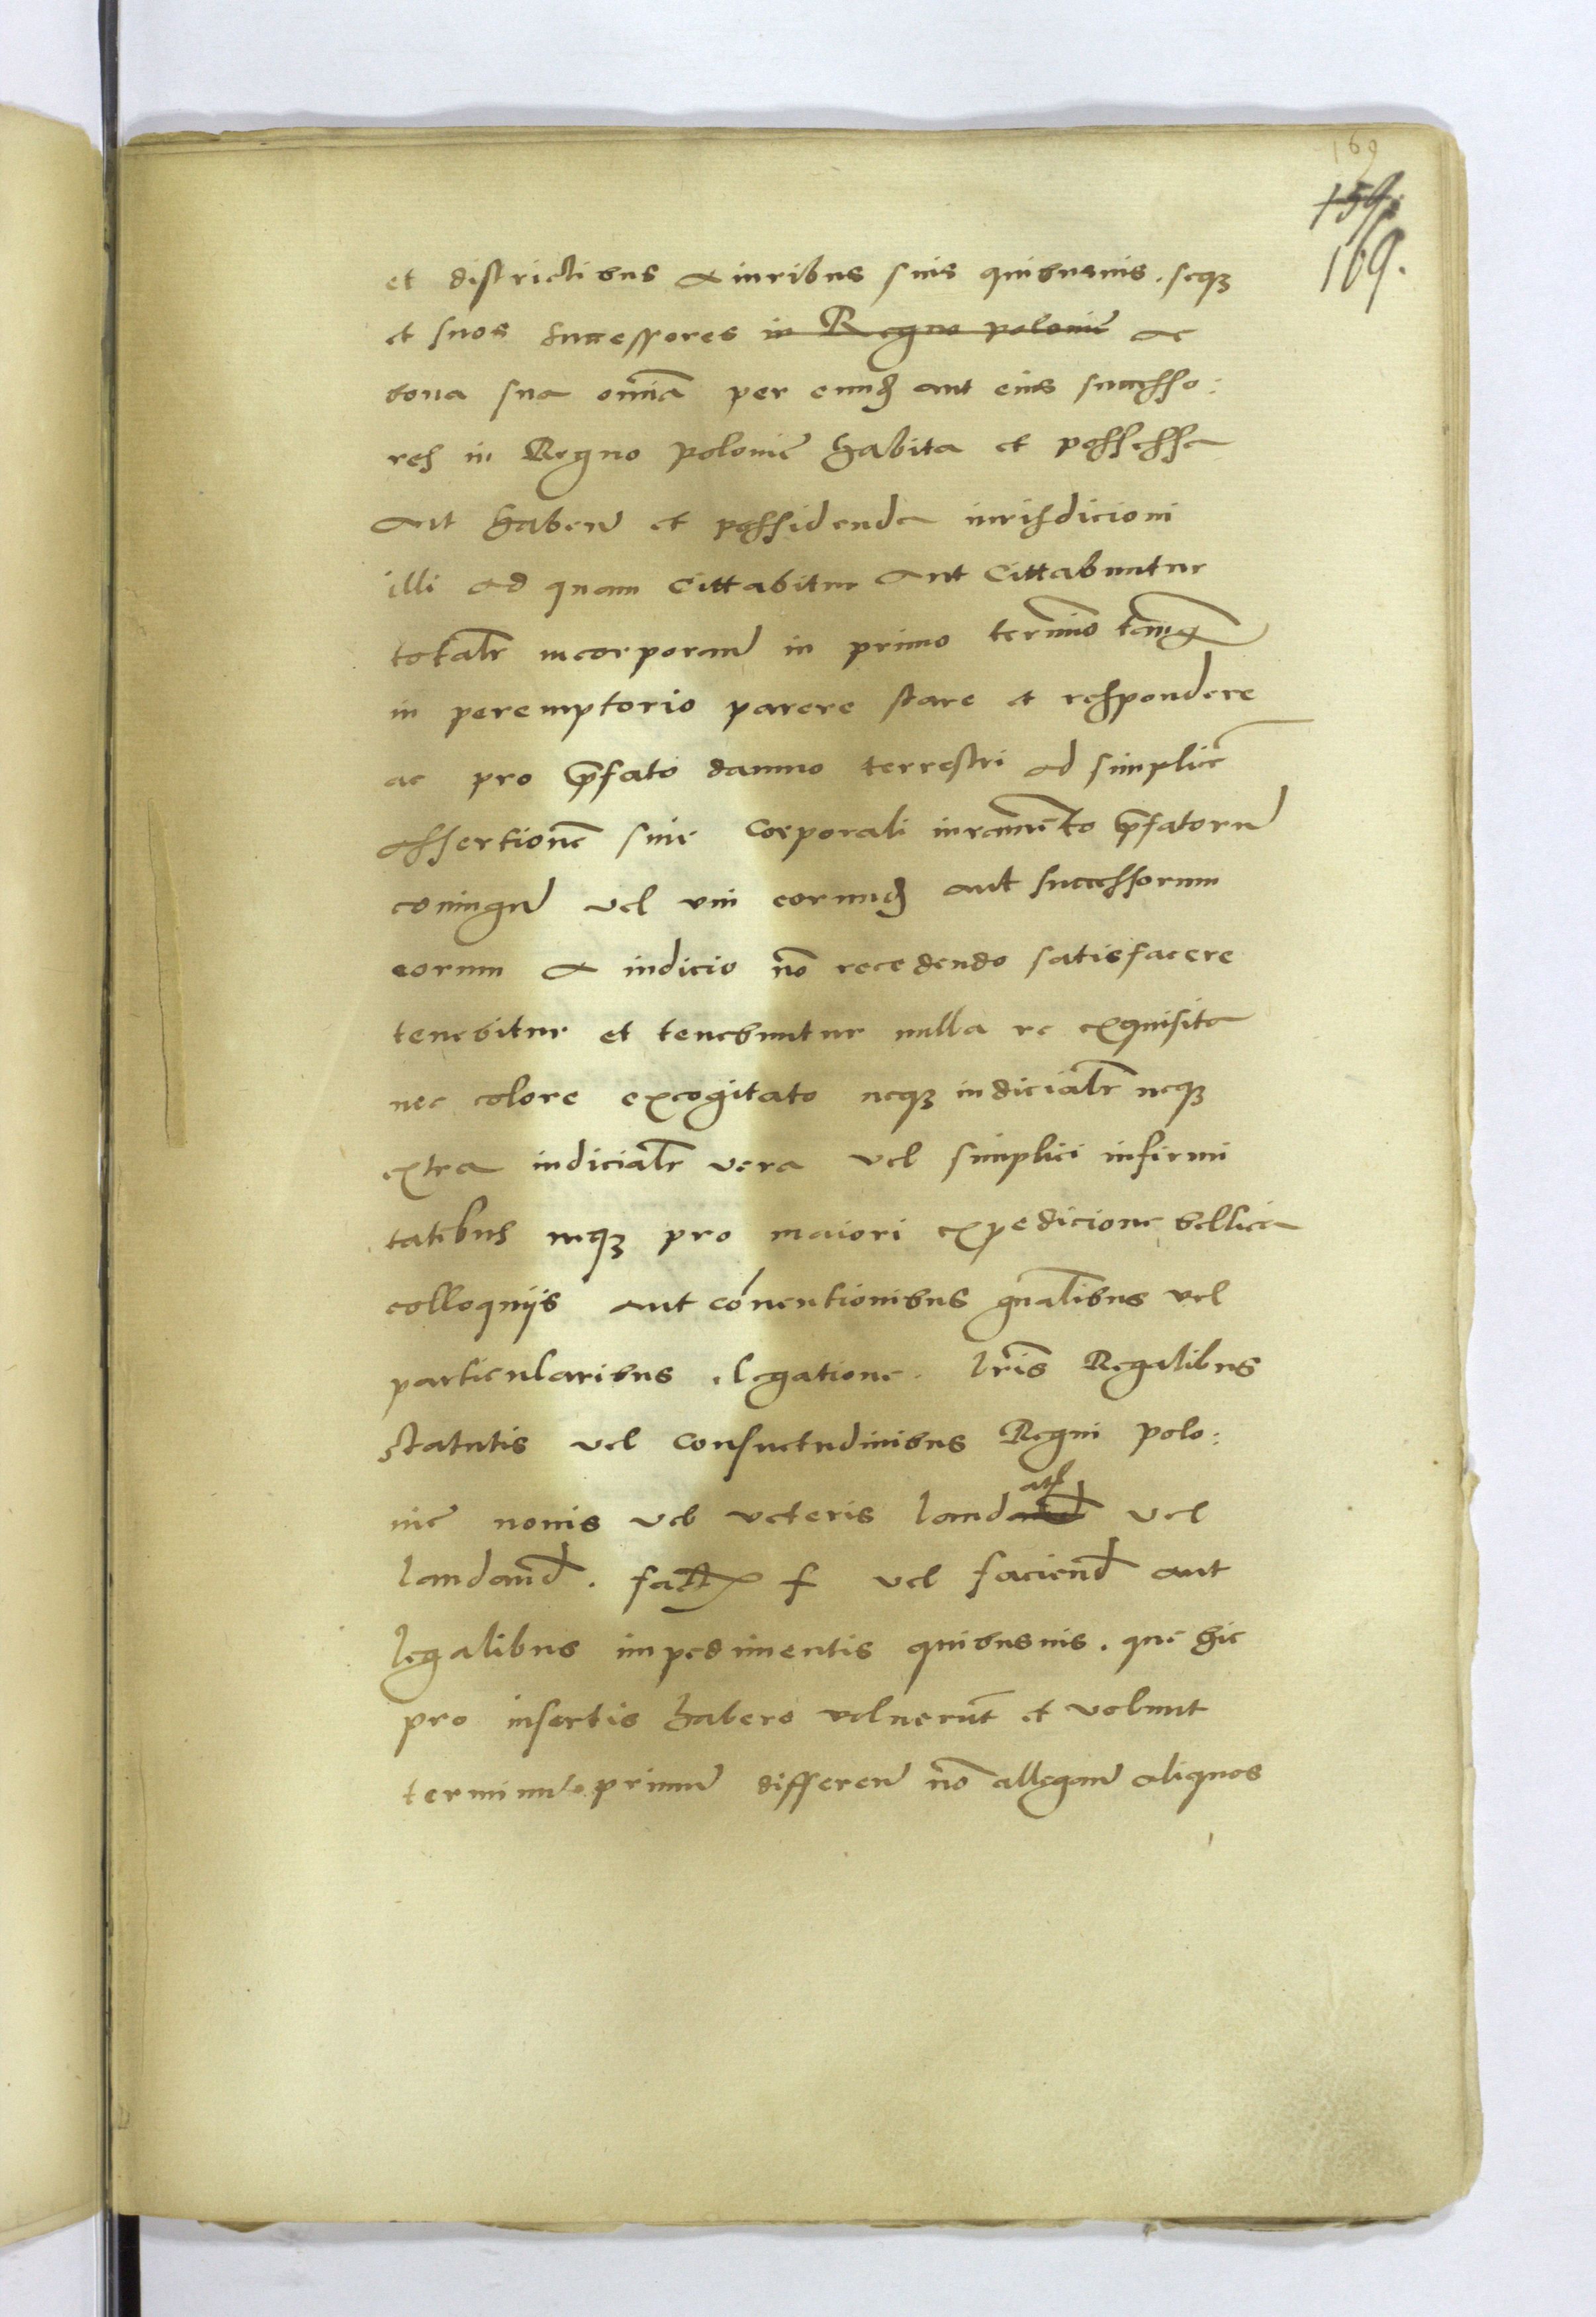 169
159.
169.
et districtibus & iuribus suis quibusuis. seqz
et suos successores in Regno polonie ac
bona sua omnia per eund aut eius successo:
res in Regno polonie habita et possessa
aut haben et possidenda iurisdicioni
illi ad quam Cittabitur aut Cittabuntur
totalr incorporan in primo termino tamq
in peremptorio parere stare et respondere
ac pro pfato damno terrestri ad simplice
assertione siue Corporali iuramento pfatorum
coniugu vel vni eorund aut successorum
eorum a iudicio no recedendo satisfacere
tenebitur et tenebuntur nulla re exquisita
nec colore excogitato neqz iudicialr neqz
extra iudicialr vera vel simplici infirmi
tatibus neqz pro maiori expedicione bellica
colloquijs aut conuentionibus gnalibus vel
particularibus. legatione. lris Regalibus
statutis vel Consuetudinibus Regni polo:
nie nouis vel veteris laudat vel
laudand. fact f vel faciend aut
legalibus impedimentis quibusuis. que hic
pro insertis habere voluerut et volunt
terminu primu differen no allegan aliquos